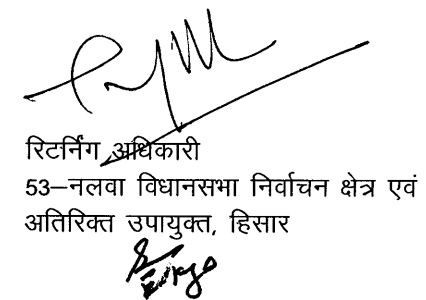 रिटर्निंग अधिकारी
53–नलवा विधानसभा निर्वाचन क्षेत्र एवं
अतिरिक्त उपायुक्त, हिसार